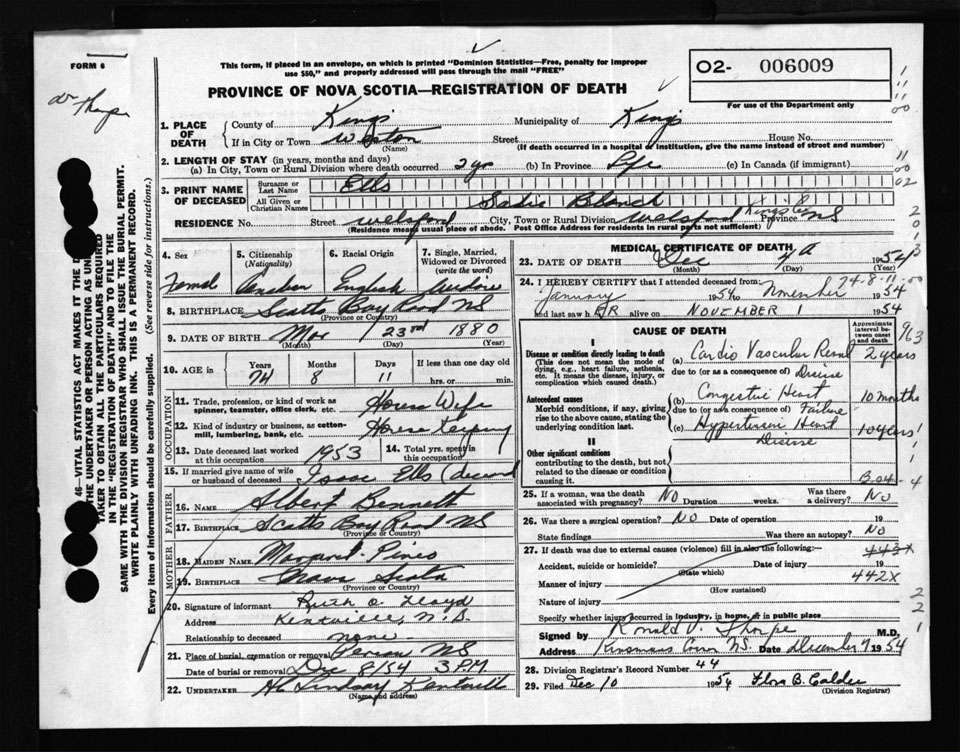 FORM 6
This form, if placed in an envelope, on which is printed "Dominion Statistics—Free, penalty for improper
use $50," and properly addressed will pass through the mail "FREE"
PROVINCE OF NOVA SCOTIA—REGISTRATION OF DEATH
O2- 006009
For use of the Department only
1. PLACE OF DEATH
County of Kings Municipality of Kings
If in City or Town Weston Street House No.
(Name) (If death occurred in a hospital of institution, give the name instead of street and number)
2. LENGTH OF STAY (in years, months and days)
(a) In City, Town or Rural Division where death occurred 2 yrs (b) In Province Life (c) In Canada (if immigrant)
3. PRINT NAME OF DECEASED
Surname or Last Name Ells
All Given or Christian Names Sadie Blanch
RESIDENCE No. Street Welsford City, Town or Rural Division Welsford Kings Co Province NS
(Residence means usual place of abode. Post Office Address for residents in rural parts not sufficient)
4. Sex
5. Citizenship (Nationality)
6. Racial Origin English
7. Single, Married, Widowed or Divorced (write the word)
8. BIRTHPLACE Scotts Bay Road NS
(Province or Country)
9. DATE OF BIRTH Mar 23rd 1880
(Month) (Day) (Year)
10. AGE in Years Months Days If less than one day old
74 8 11 hrs. or min.
OCCUPATION
11. Trade, profession, or kind of work as House Wife
spinner, teamster, office clerk, etc.
12. Kind of industry or business, as cotton- House Keeping
mill, lumbering, bank, etc.
13. Date deceased last worked at this occupation 1953
14. Total yrs. spent in this occupation
15. If married give name of wife or husband of deceased Isaac Ells
FATHER
16. NAME Albert Bennett
17. BIRTHPLACE Scotts Bay Road NS
(Province or Country)
MOTHER
18. MAIDEN NAME Margaret Pineo
19. BIRTHPLACE Nova Scotia
(Province or Country)
20. Signature of informant Ruth O. Lloyd
Address Kentville, N.S.
Relationship to deceased none
21. Place of burial, cremation or removal NS
Date of burial or removal Dec 8/54 3 P.M
22. UNDERTAKER H Lindsay Kentville
(Name and address)
MEDICAL CERTIFICATE OF DEATH
23. DATE OF DEATH Dec 1954
(Month) (Day) (Year)
24. I HEREBY CERTIFY that I attended deceased from: 74-8-11
January 1954 to November 1954
and last saw hER alive on NOVEMBER 1 1954
CAUSE OF DEATH
Approximate interval between onset and death
I
Disease or condition directly leading to death
(This does not mean the mode of dying, e.g., heart failure, asthenia, etc. It means the disease, injury, or complication which caused death.)
(a) Cardio Vascular Renal 2 years
due to (or as a consequence of) Disease
Antecedent causes
Morbid conditions, if any, giving rise to the above cause, stating the underlying condition last.
(b) Congestive Heart 10 months
due to (or as a consequence of) Failure
(c) Hypertensive Heart 10 years
Disease
II
Other significant conditions
contributing to the death, but not related to the disease or condition causing it.
25. If a woman, was the death associated with pregnancy? NO Duration weeks. Was there delivery? NO
26. Was there a surgical operation? NO Date of operation 19
State findings Was there an autopsy? NO
27. If death was due to external causes (violence) fill in also the following:— 443X
Accident, suicide or homicide? Date of injury 19
(State which) 442X
Manner of injury
(How sustained)
Nature of injury
Specify whether injury occurred in industry, in home, or in public place
Signed by Ronald V. Thorpe M.D.
Address NS. Date December 7 1954
28. Division Registrar's Record Number 44
29. Filed Dec 10 1954 Flora B. Calder
(Division Registrar)
46—VITAL STATISTICS ACT MAKES IT THE
THE UNDERTAKER OR PERSON ACTING AS
TAKER TO OBTAIN ALL THE PARTICULARS REQUIRED
IN THE "REGISTRATION OF DEATH" AND TO FILE THE
SAME WITH THE DIVISION REGISTRAR WHO SHALL ISSUE THE BURIAL PERMIT.
WRITE PLAINLY WITH UNFADING INK. THIS IS A PERMANENT RECORD.
Every item of Information should be carefully supplied. (See reverse side for instructions.)